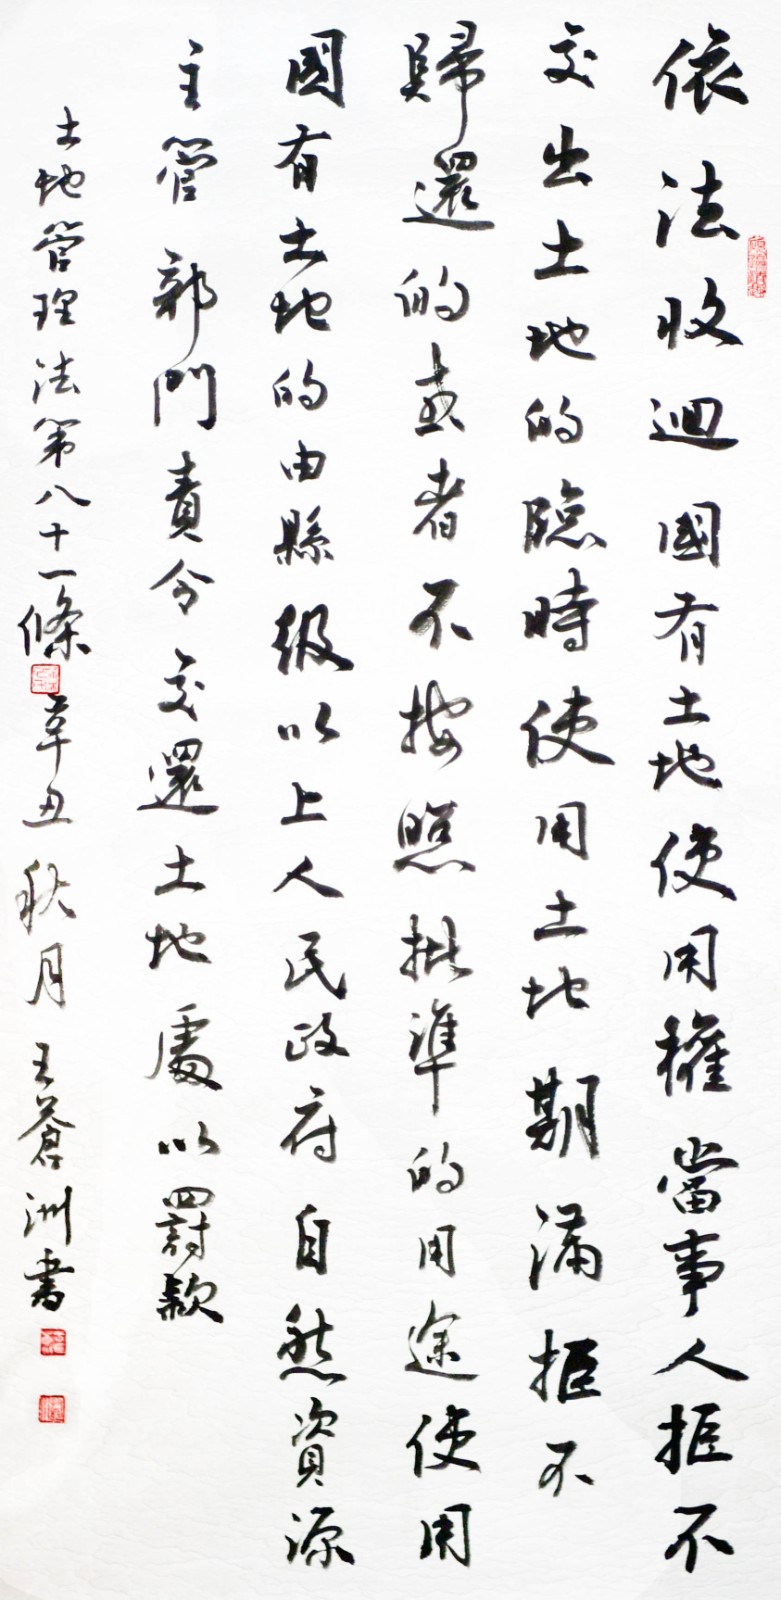 依法收迴國有土地使用權當事人拒不
交出土地的臨時使用土地期滿拒不
歸還的或者不按照批準的用途使用
國有土地的由縣級以上人民政府自然資源
主管部門責令交還土地處以罰款
土地管理法第八十一條辛丑秋月王蒼洲書